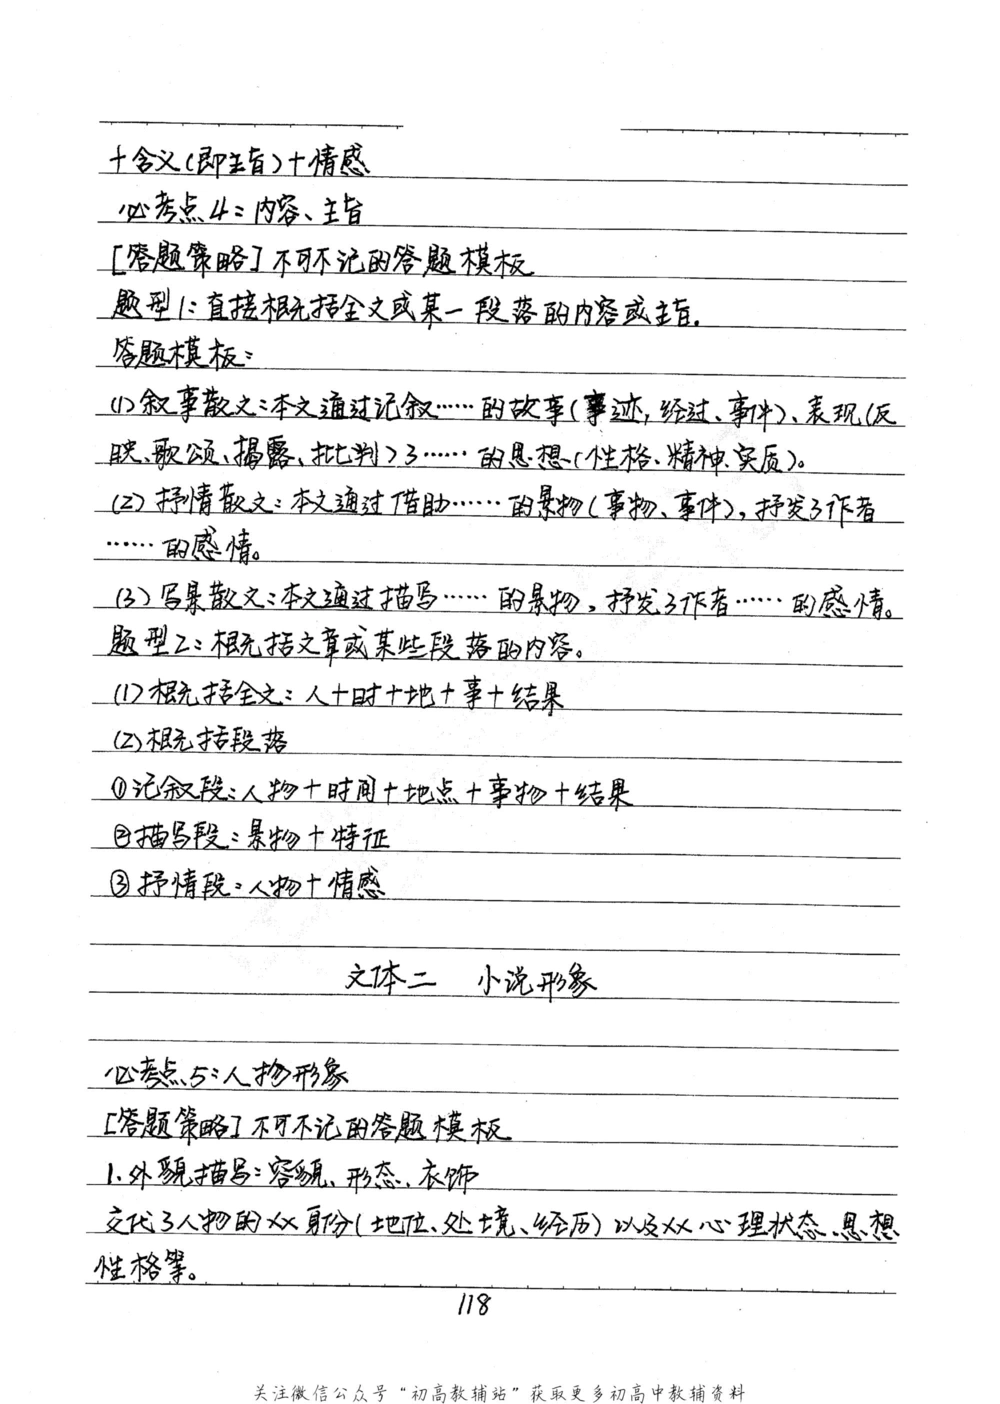 +含义(即主旨)+情感
必考点4:内容、主旨
[答题策略]不可不记的答题模板
题型1:直接概括全文或某一段落的内容或主旨.
答题模板:
(1)叙事散文:本文通过记叙……的故事(事迹,经过、事件)、表现(反
映、歌颂、揭露、批判)了……的思想(性格、精神、实质)。
(2)抒情散文:本文通过借助……的景物(事物、事件),抒发了作者
……的感情。
(3)写景散文:本文通过描写……的景物,抒发了作者……的感情。
题型2:概括文章或某些段落的内容。
(1)概括全文:人+时+地+事+结果
(2)概括段落
①记叙段:人物+时间+地点+事物+结果
②描写段:景物+特征
③抒情段:人物+情感
文体二 小说形象
必考点5:人物形象
[答题策略]不可不记的答题模板
1.外貌描写:容貌、形态、衣饰
交代了人物的××身份(地位、处境、经历)以及××心理状态、思想
性格等。
118
关注微信公众号“初高教辅站”获取更多初高中教辅资料